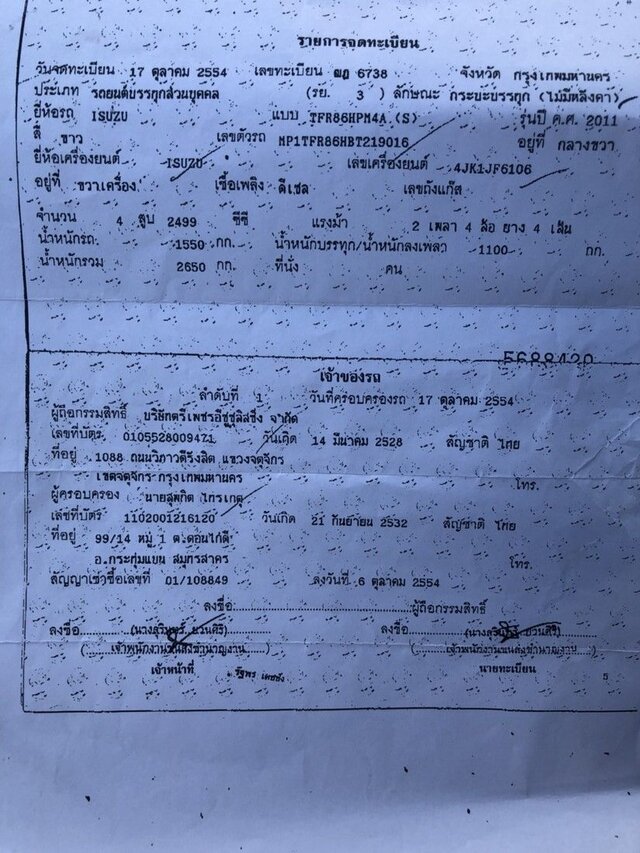 รายการจดทะเบียน
วันจดทะเบียน 17 ตุลาคม 2554 เลขทะเบียน ฒฎ 6738 จังหวัด กรุงเทพมหานคร
ประเภท รถยนต์บรรทุกส่วนบุคคล (รย. 3 ) ลักษณะ กระบะบรรทุก (ไม่มีหลังคา)
ยี่ห้อรถ ISUZU แบบ TFR86HPM4A (S) รุ่นปี ค.ศ. 2011
สี ขาว เลขตัวรถ MP1TFR86HBT219016 อยู่ที่ กลางขวา
ยี่ห้อเครื่องยนต์ ISUZU เลขเครื่องยนต์ 4JK1JF6106
อยู่ที่ ขวาเครื่อง เชื้อเพลิง ดีเซล เลขถังแก๊ส
จำนวน 4 สูบ 2499 ซีซี แรงม้า 2 เพลา 4 ล้อ ยาง 4 เส้น
น้ำหนักรถ 1550 กก. น้ำหนักบรรทุก/น้ำหนักลงเพลา 1100 กก.
น้ำหนักรวม 2650 กก. ที่นั่ง คน
5688420
เจ้าของรถ
ลำดับที่ 1 วันที่ครอบครองรถ 17 ตุลาคม 2554
ผู้ถือกรรมสิทธิ์ บริษัทตรีเพชรอีซูซุลิสซิ่ง จำกัด
เลขที่บัตร 0105528009471 วันเกิด 14 มีนาคม 2528 สัญชาติ ไทย
ที่อยู่ 1088 ถนนวิภาวดีรังสิต แขวงจตุจักร
เขตจตุจักร กรุงเทพมหานคร โทร.
ผู้ครอบครอง นายสุพกิต ไกรเกตุ
เลขที่บัตร 1102001216120 วันเกิด 21 กันยายน 2532 สัญชาติ ไทย
ที่อยู่ 99/14 หมู่ 1 ต.ดอนไก่ดี
อ.กระทุ่มแบน สมุทรสาคร โทร.
สัญญาเช่าซื้อเลขที่ 01/108849 ลงวันที่ 6 ตุลาคม 2554
ลงชื่อ ผู้ถือกรรมสิทธิ์
ลงชื่อ (นางสุรินทร์ ยวนศิริ) ลงชื่อ (นางสุรินทร์ ยวนศิริ)
(เจ้าพนักงานขนส่งชำนาญงาน) (เจ้าพนักงานขนส่งชำนาญงาน)
เจ้าหน้าที่ นายทะเบียน
5